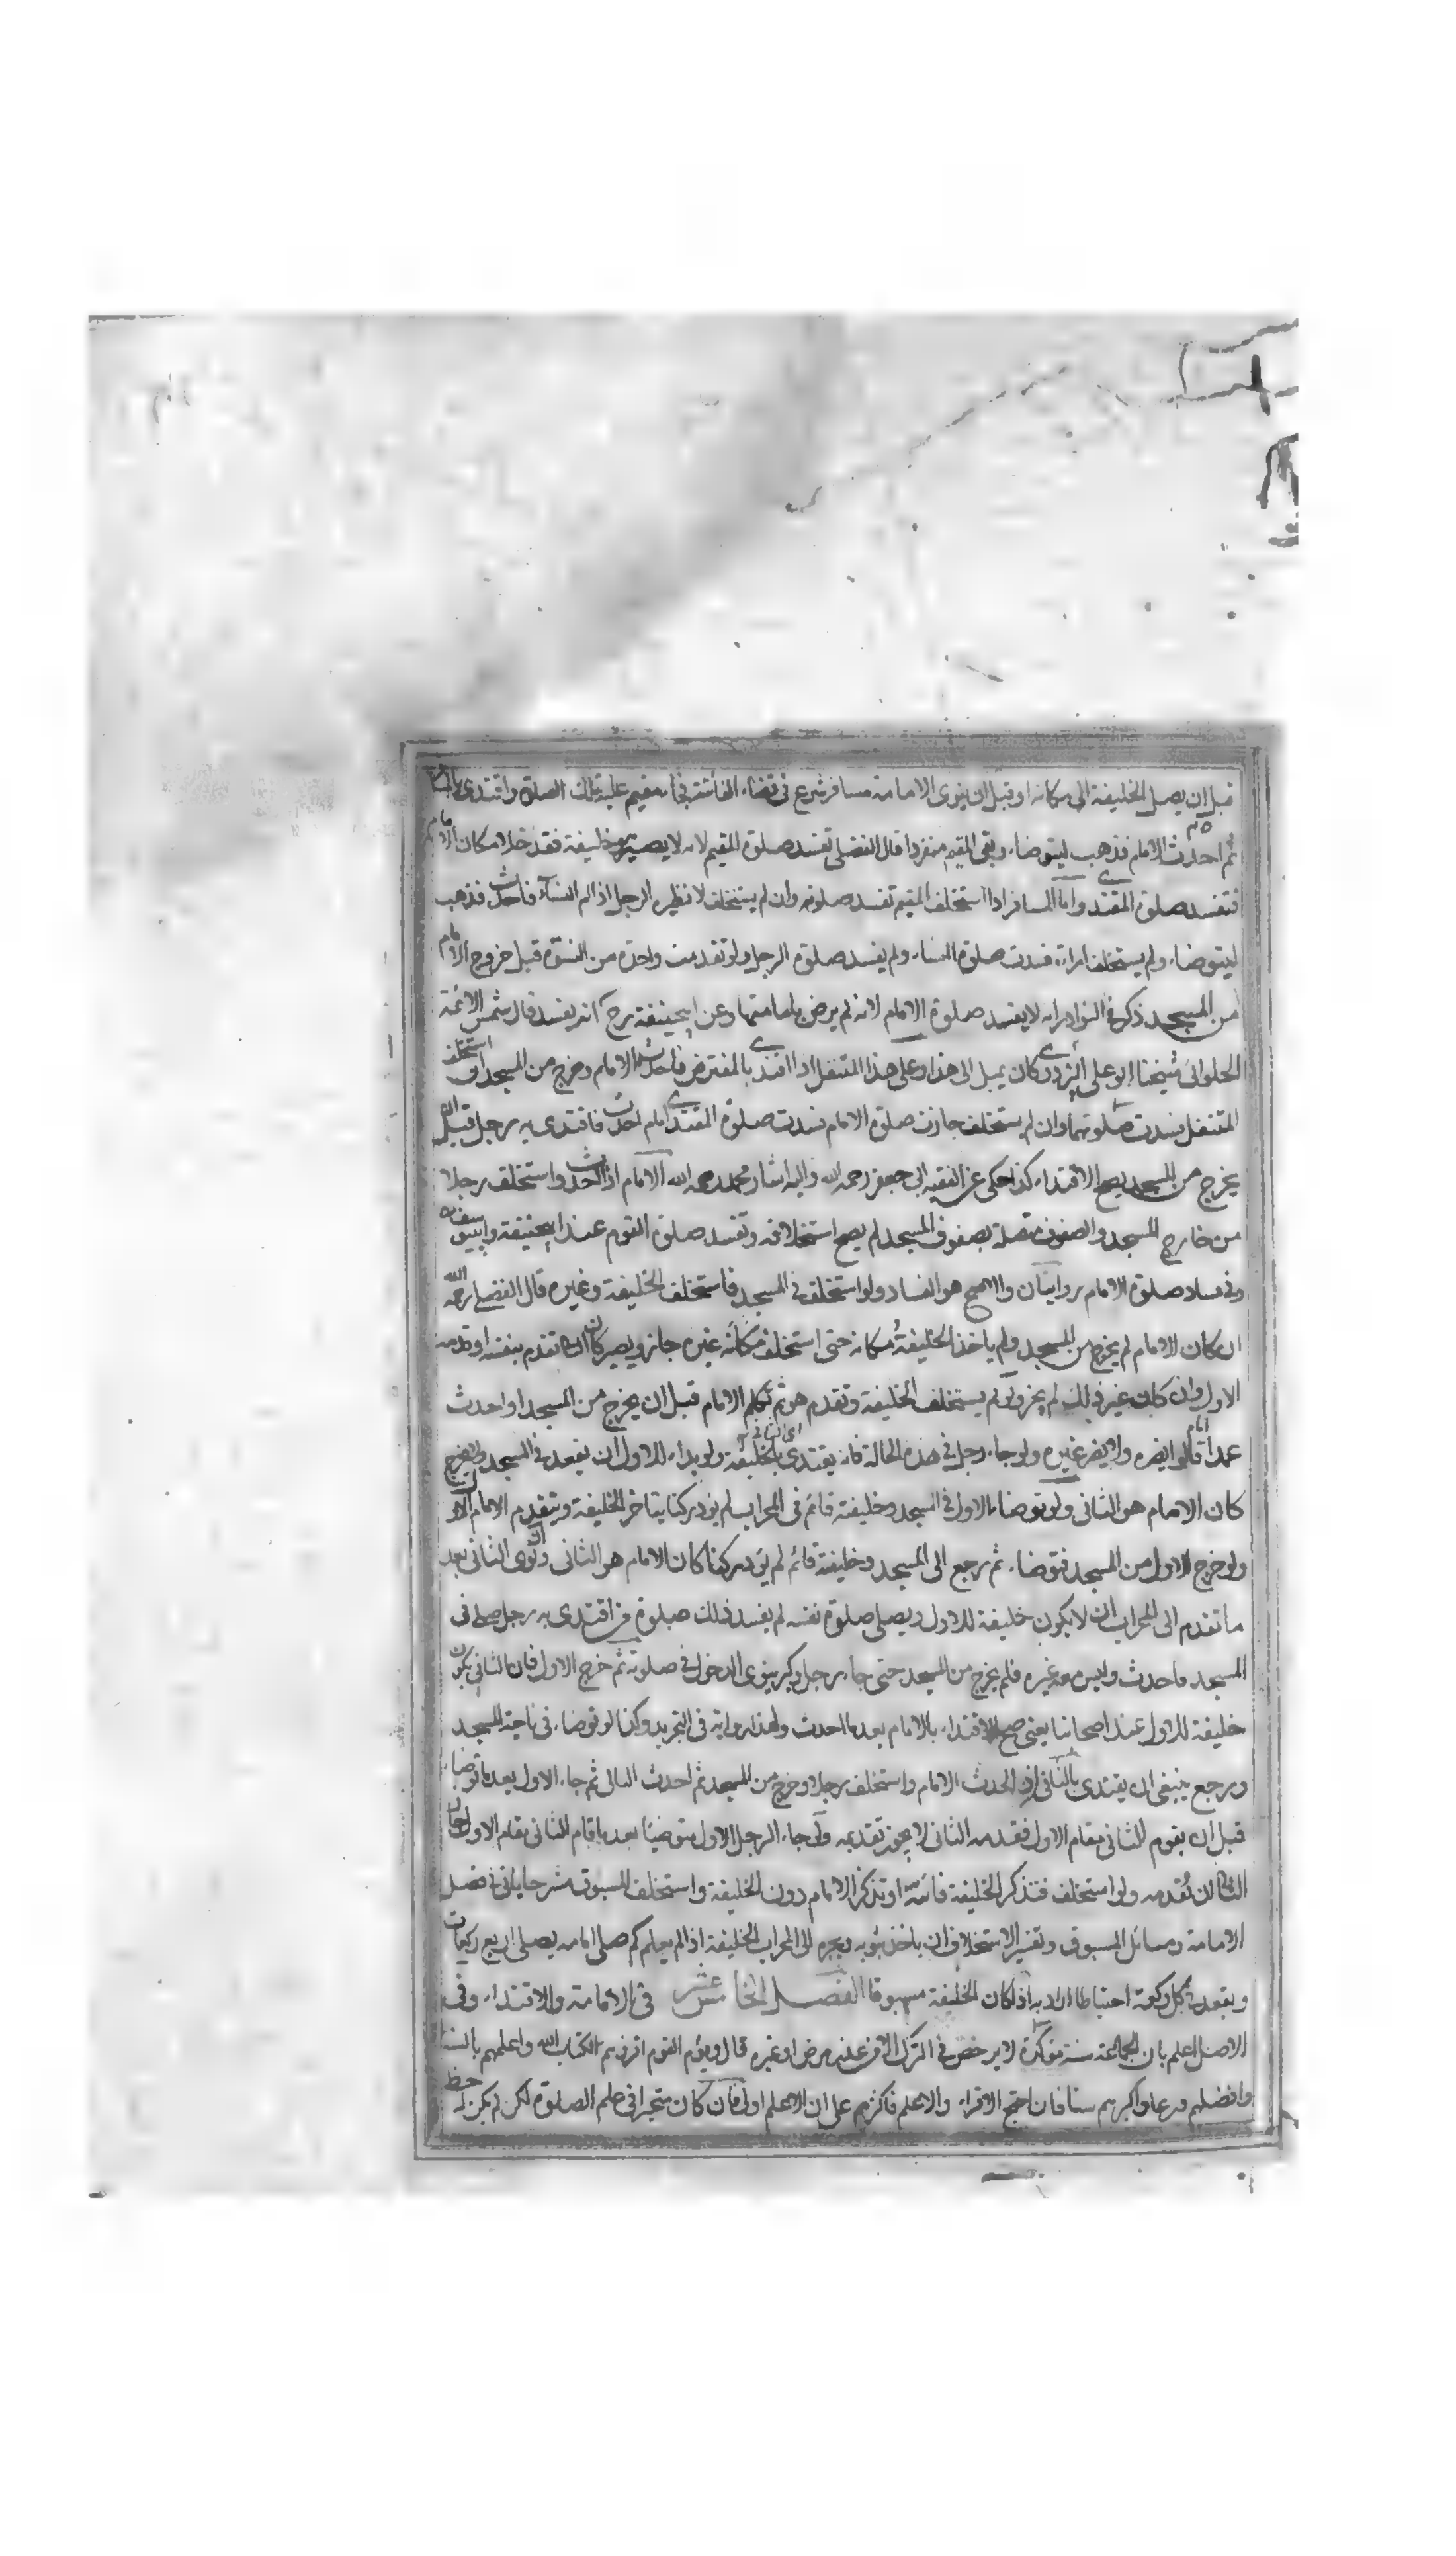 قبل ان يصل الخليفة الى مكانه او قبل ان ينوى الامامة مسافر شرع فى قضاء الفائتة فجاء مقيم عليه تلك الصلوة واقتدى
ثم احدث الامام فذهب ليتوضاء وبقى المقيم منفردا قال الفضلى تفسد صلوة المقيم لانه لا يصير خليفة فقد خلا مكان الامام
فتفسد صلوة المقتدى واما المسافر اذا استخلف المقيم تفسد صلوته وان لم يستخلف لا نظيره الرجل اذا ام النساء فاحدث فذهب
ليتوضاء ولم يستخلف امراءة فسدت صلوة النساء ولم يفسد صلوة الرجل ولو تقدمت واحدة من النسوة قبل خروج الامام
من المسجد ذكر فى النوادر انه لا يفسد صلوة الامام لانه لم يرض بامامتها وعن ابيحنيفة رح انه يفسد قال شمس الائمة
الحلوانى شيخنا ابو على البزدوى كان يميل الى هذا وعلى هذا المتنفل اذا اقتدى بالمفترض فاحدث الامام وخرج من المسجد ان استخلف
المتنفل فسدت صلوتهما وان لم يستخلف جازت صلوة الامام فسدت صلوة المقتدى امام احدث فاقتدى به رجل قبل ان
يخرج من المسجد يصح الاقتداء كذا حكى عن الفقيه ابى جعفر رحمه الله واليه اشار محمد رحمه الله الامام اذا احدث واستخلف رجلا
من خارج المسجد والصفوف متصلة بصفوف المسجد لم يصح استخلافه وتفسد صلوة القوم عند ابيحنيفة وابيوسف
وفى فساد صلوة الامام روايتان والاصح هو الفساد ولو استخلف فى المسجد فاستخلف الخليفة وغيره قال الفضلى رحمه الله
ان كان الامام لم يخرج من المسجد ولم ياخذ الخليفة مكانه حتى استخلف مكانه غيره جاز ويصير كان الثانى تقدم بنفسه او قدمه
الاول وان كان غير ذلك لم يجز ولو لم يستخلف الخليفة وتقدم هو ثم تكلم الامام قبل ان يخرج من المسجد او احدث
عمدا قالوا يضره ولا يضر غيره ولو جاء رجل فى هذه الحالة فانه يقتدى بالخليفة ولو بداء للاول ان يقعد فى المسجد ولا يخرج
كان الامام هو الثانى ولو توضاء الاول فى المسجد وخليفته قائم فى المحراب لم يؤد ركنا يتاخر الخليفة ويتقدم الامام الاول
ولو خرج الاول من المسجد فتوضاء ثم رجع الى المسجد وخليفة قائم لم يؤد ركنا كان الامام هو الثانى ولو نوى الثانى بعد
ما تقدم الى المحراب ان لا يكون خليفة للاول ويصلى صلوة نفسه لم يفسد ذلك صلوة من اقتدى به رجل صلى فى
المسجد فاحدث وليس معه غيره فلم يخرج من المسجد حتى جاء رجل وكبر ينوى الدخول فى صلوته ثم خرج الاول فان الثانى يكون
خليفة للاول عند اصحابنا يعنى صح الاقتداء بالامام بعد ما احدث ولهذا رواية فى التجريد وكذا لو توضاء فى ناحية المسجد
ورجع ينبغى ان يقتدى بالثانى اذا احدث الامام واستخلف رجلا وخرج من المسجد ثم احدث الثانى ثم جاء الاول بعد ما توضاء
قبل ان يقوم الثانى مقام الاول فقدمه الثانى لا يجوز تقديمه ولو جاء الرجل الاول متوضيئا بعد ما قام الثانى مقام الاول جاز
الثانى ان تقدمه ولو استخلف فتذكر الخليفة فائتة او تذكر الامام دون الخليفة واستخلف المسبوق مشرحا ياتى فى فصل
الامامة ومسائل المسبوق وتفسير الاستخلاف ان ياخذ بثوبه ويجره الى المحراب الخليفة اذا لم يعلم كم صلى امامه يصلى اربع ركعات
ويقعد فى كل ركعة احتياطا اراد به اذا كان الخليفة مسبوقا الفصل الخامس عشر فى الامامة والاقتداء وفى
الاصل اعلم بان الجماعة سنة مؤكدة لا يرخص فى الترك الا من عذر مرض او غيره قال ويؤم القوم اقرؤهم لكتاب الله واعلمهم بالسنة
وافضلهم ورعا واكبرهم سنا فان اجتمع الاقراء والاعلم فاكثرهم على ان الاعلم اولى فان كان متبحرا فى علم الصلوة لكن لم يكن له حظ